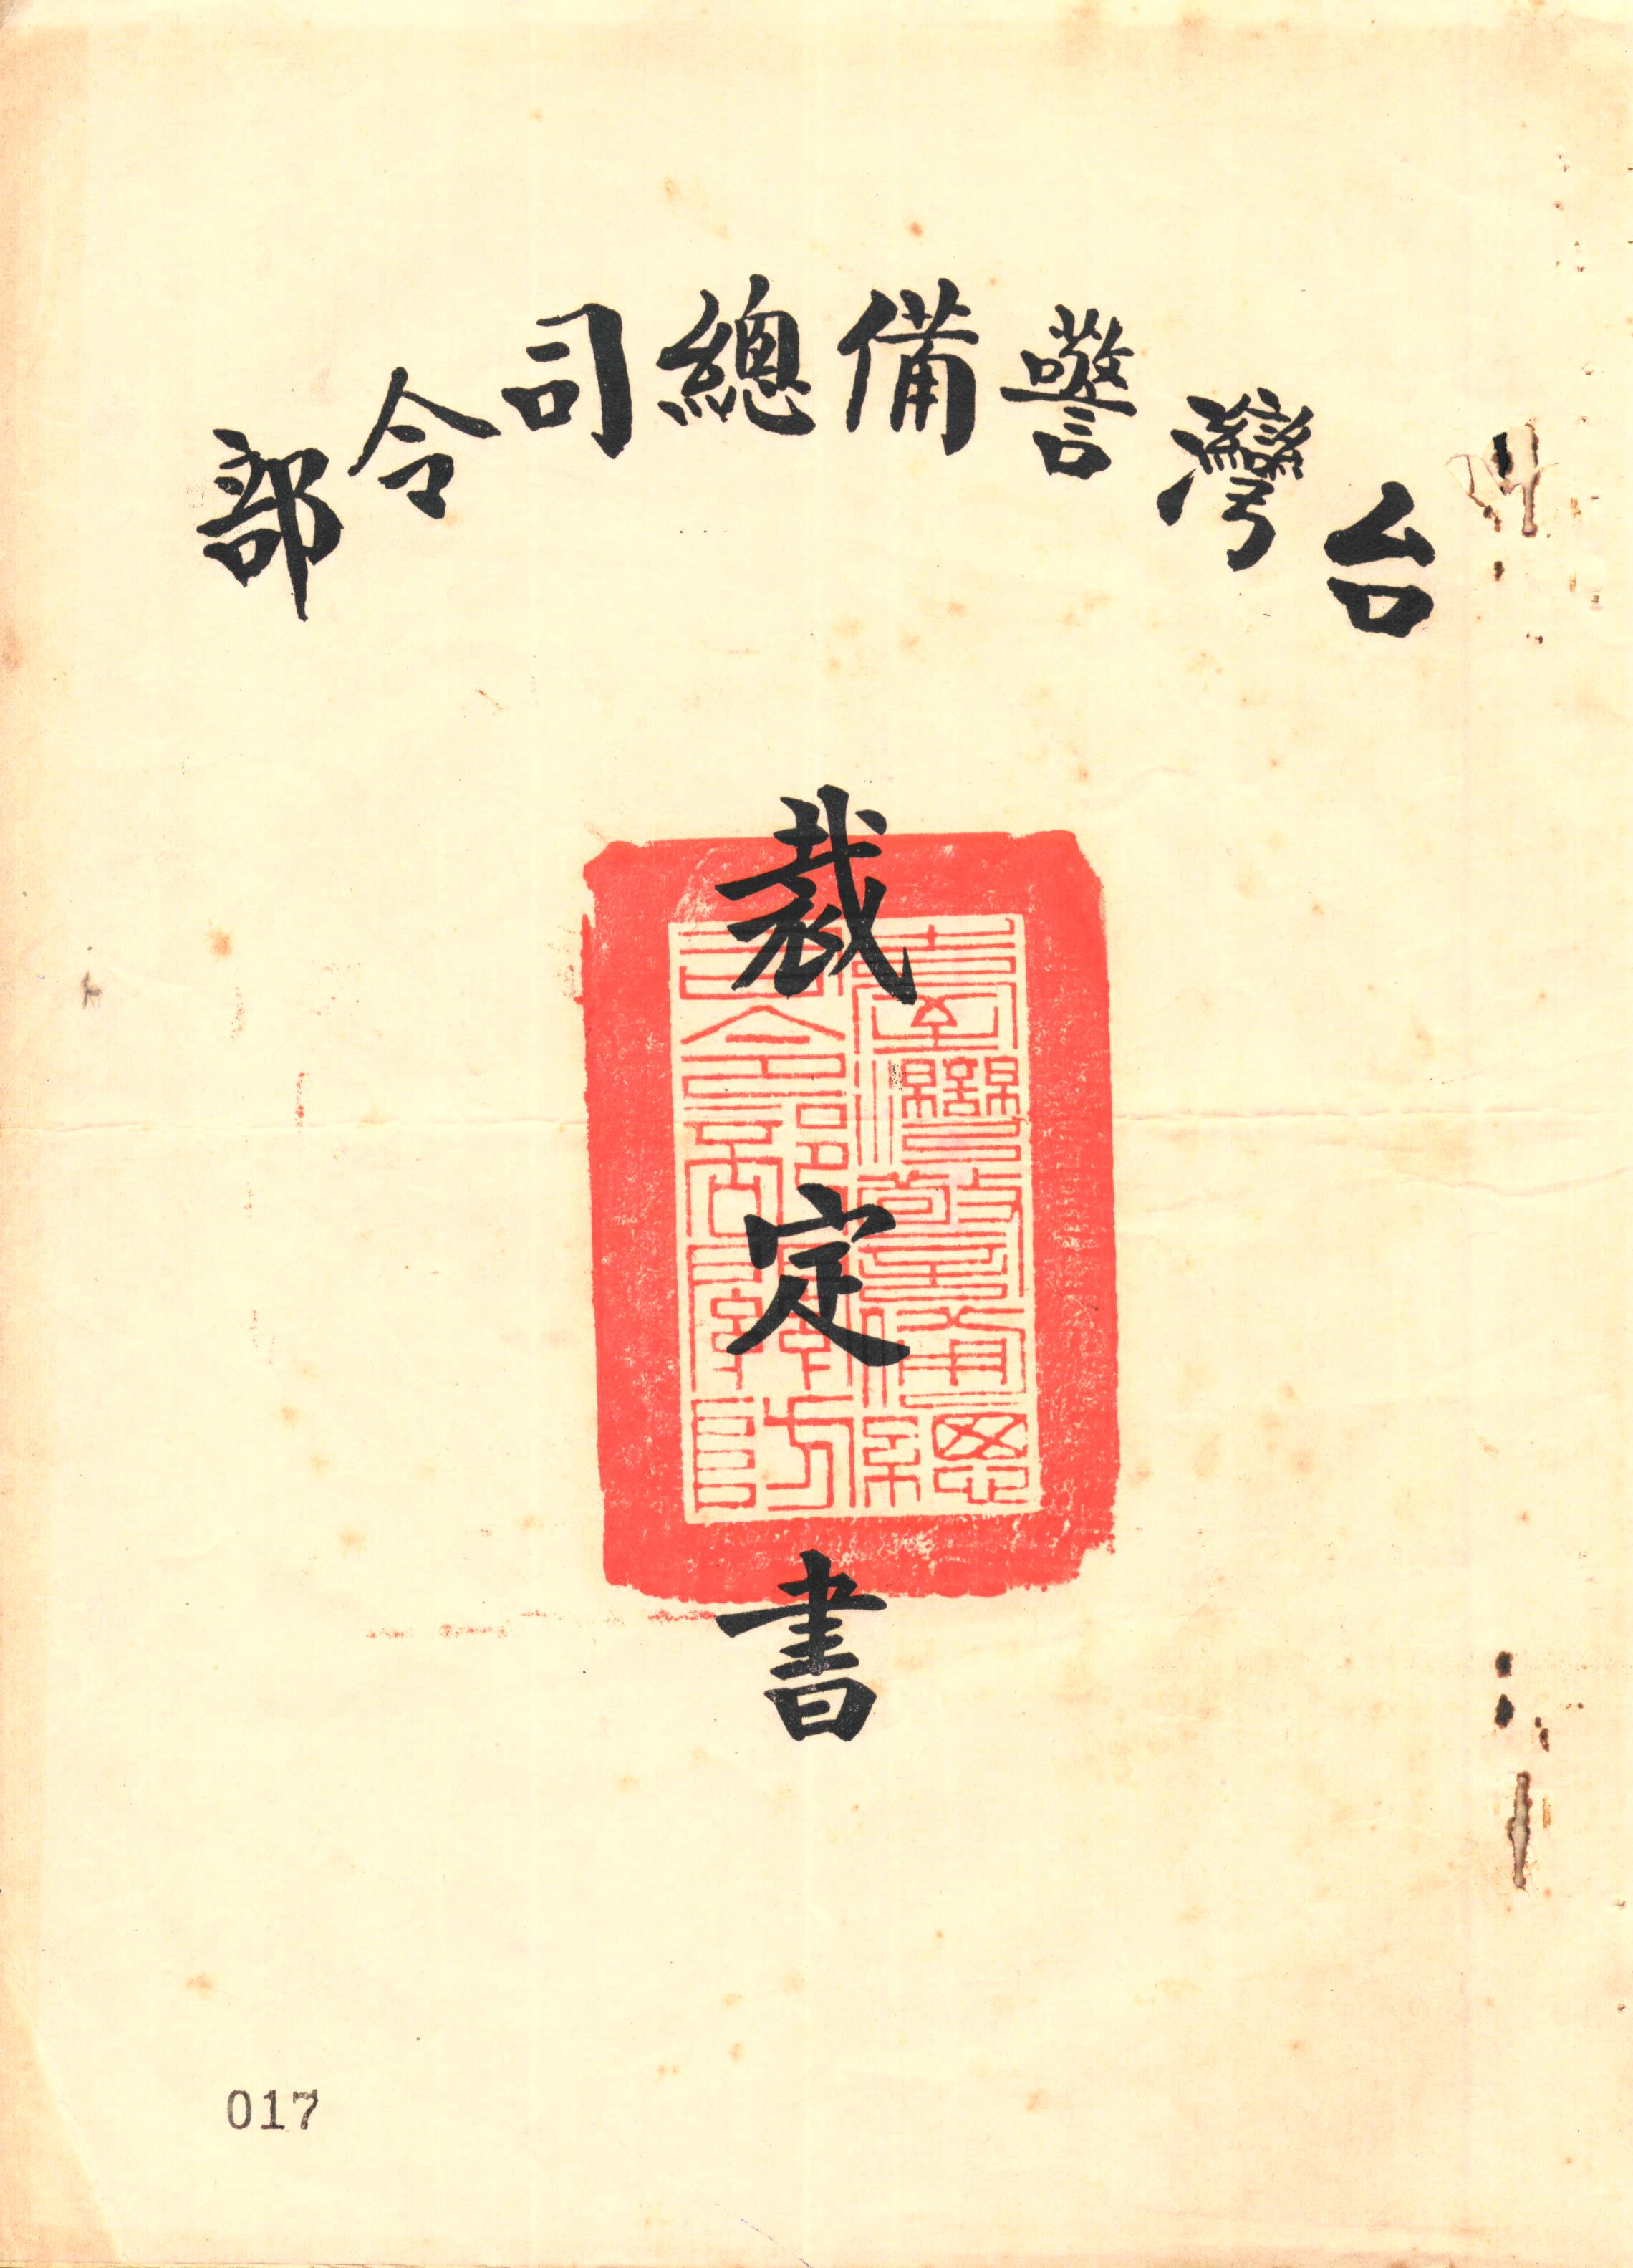 台灣警備總司令部
裁定書
臺灣警備總
司令部關防
017